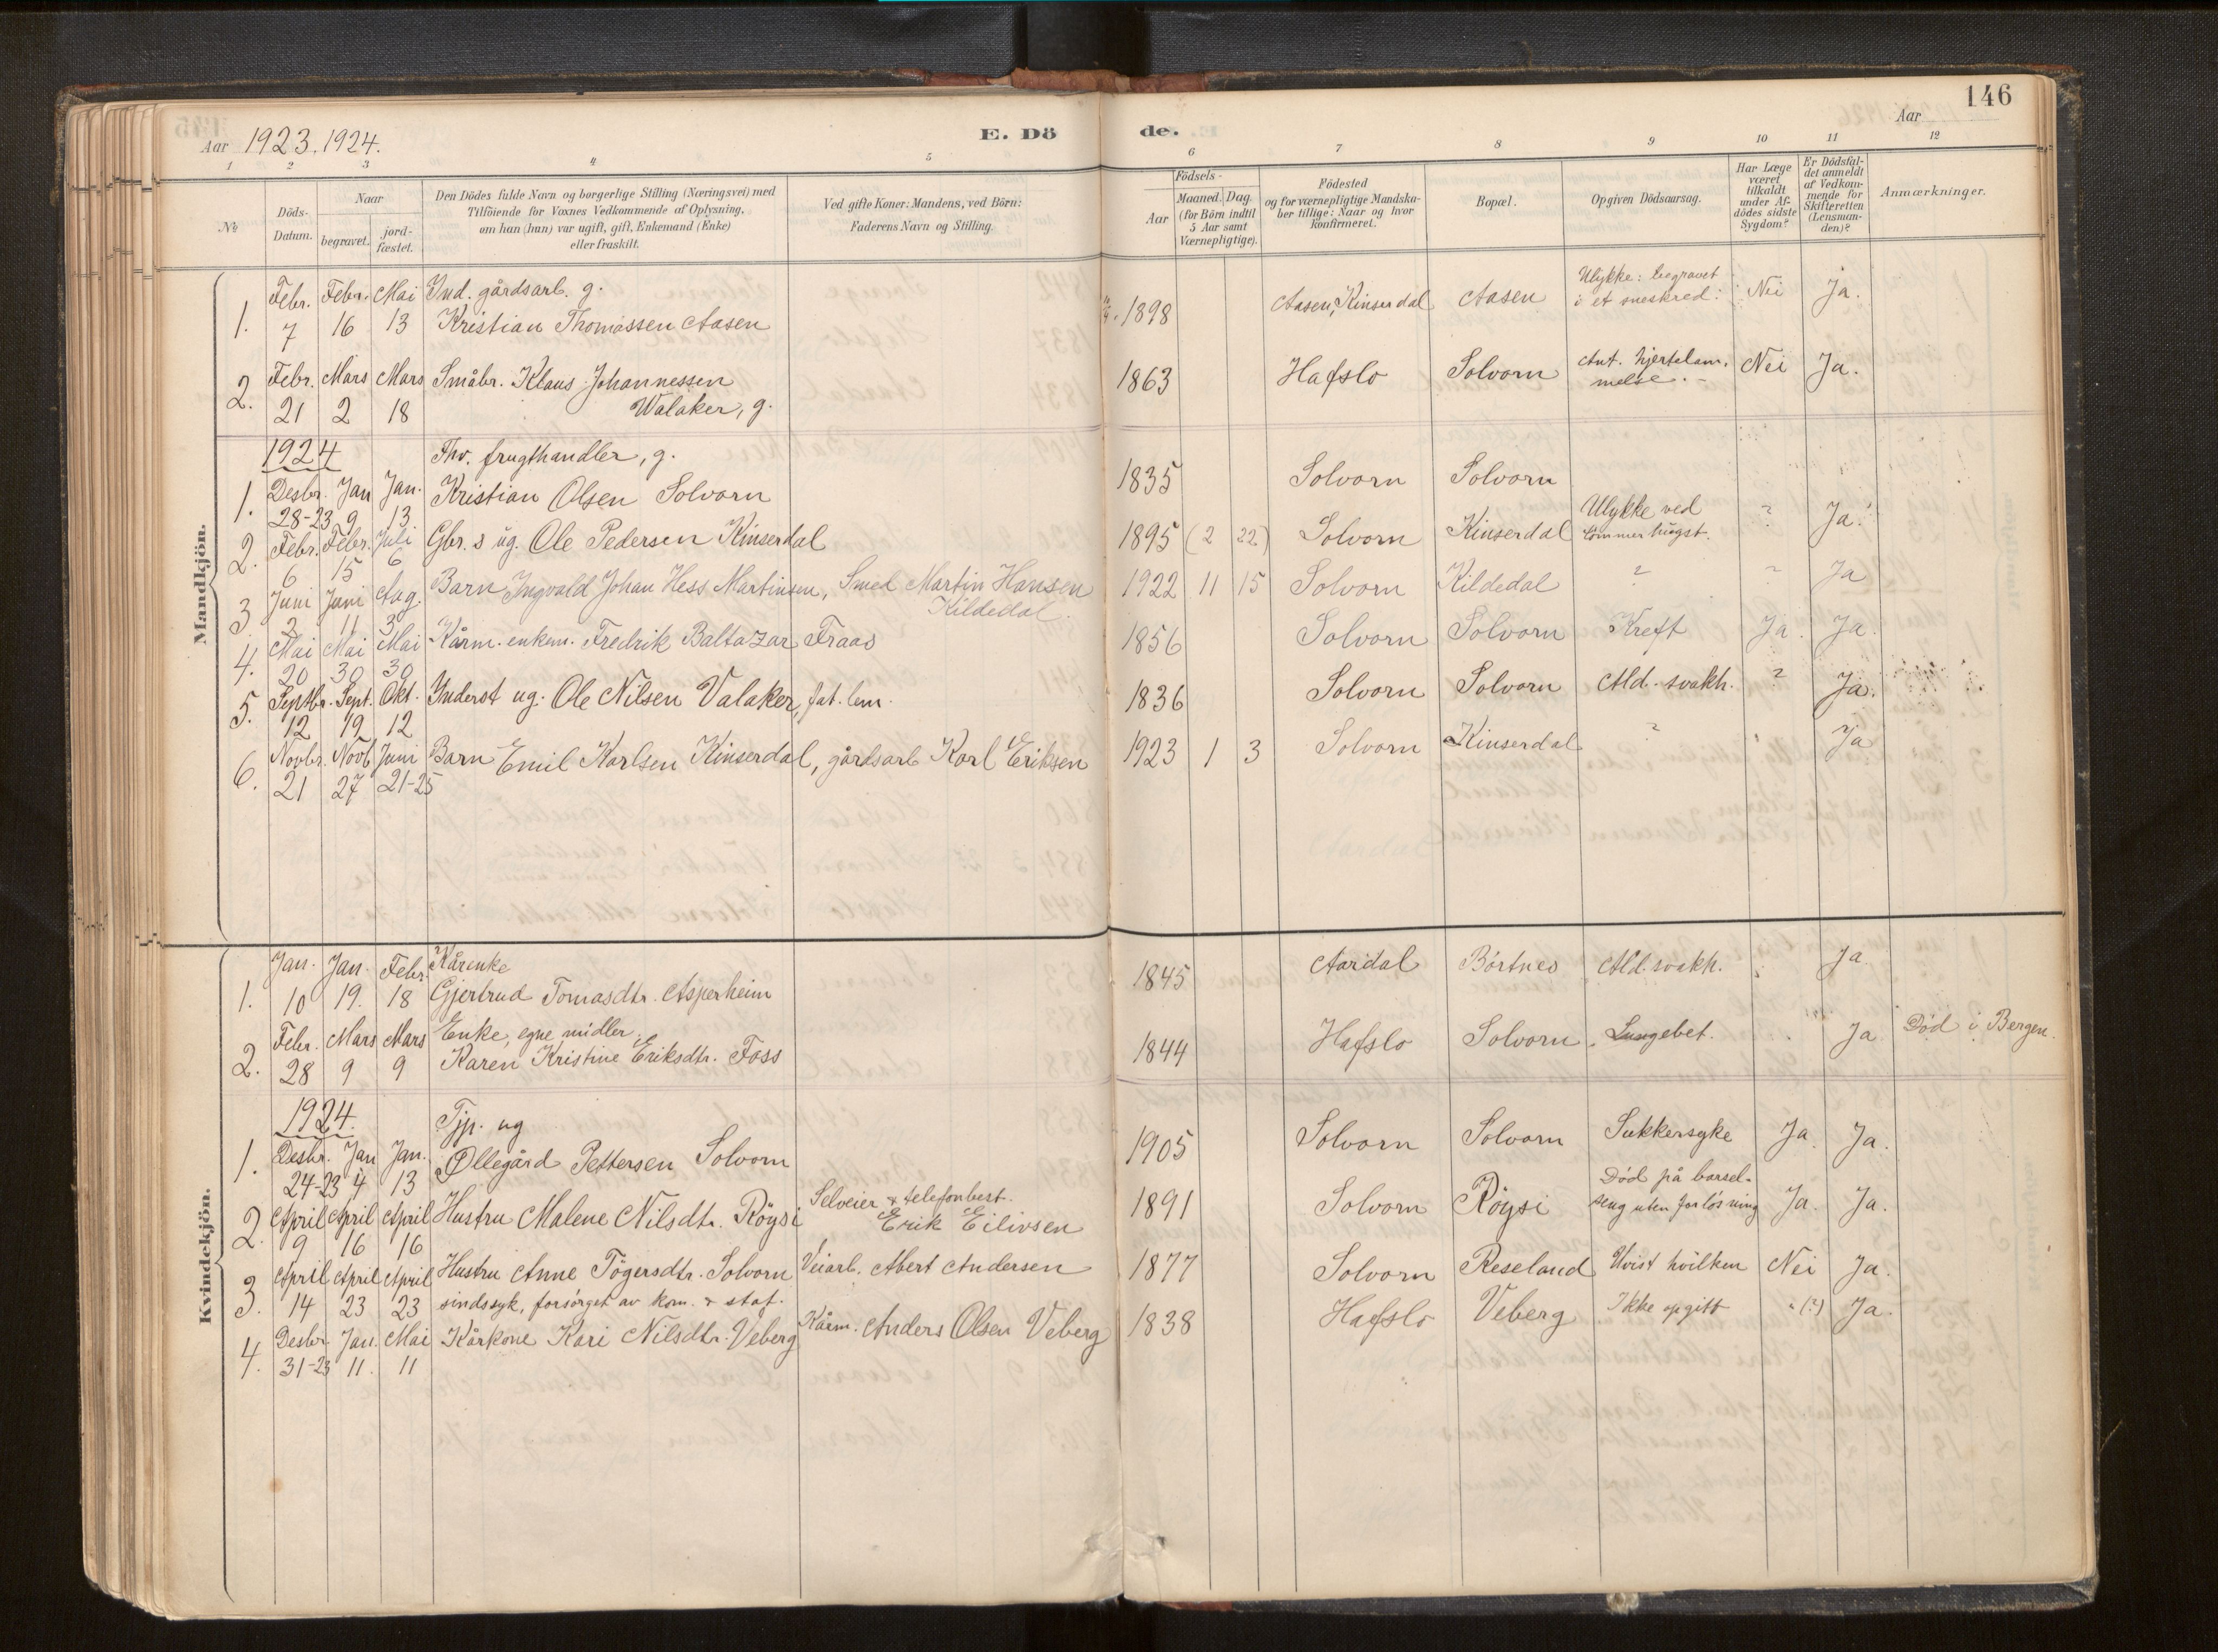 146
Aar 1923. 1924.
E. Dö
de.
Aar
1 2 3 4 5 6 7 8 9 10 11 12
№
Döds-Datum.
Naar
begravet.
jord-fæstet.
Den Dödes fulde Navn og borgerlige Stilling (Næringsvei) med
Tilföiende for Voxnes Vedkommende af Oplysning,
om han (hun) var ugift, gift, Enkemand (Enke)
eller fraskilt.
Ved gifte Koner: Mandens, ved Börn:
Faderens Navn og Stilling.
Födsels-
Aar
Maaned. Dag.
(for Börn indtil
5 Aar samt
Værnepligtige).
Födested
og for værnepligtige Mandska-
ber tillige: Naar og hvor
konfirmeret.
Bopæl.
Opgiven Dödsaarsag.
Har Læge
været
tilkaldt
under Af-
dödes sidste
Sygdom?
Er Dödsfal-
det anmeldt
af Vedkom-
mende for
Skifteretten
(Lensman-
den)?
Anmærkninger.
Mandkjön.
Febr. Febr. Mai Ind. gårdsarb. g.
1. 7 16 13 Kristian Thomassen Aasen 1898 Aasen, Kinserdal Aasen Ulykke: begravet
i et sneskred. Nei Ja.
Febr. Mars Mars Småbr. Klaus Johannessen
2. 21 2 18 Walaker, g. 1863 Hafslo Solvorn Ant. hjertelam-
melse. Nei Ja.
1924 Fhv. frugthandler, g.
1. Desbr. Jan Jan. Kristian Olsen Solvorn 1835 Solvorn Solvorn
28-23 9 13.
2. Febr. Febr. Juli Gbr.s ug. Ole Pedersen Kinserdal 1895 (2 22) Solvorn Kinserdal Ulykke ved
tömmerhugst. ? Ja.
6 15 6
3 Juni Juni Aug. Barn Ingvald Johan Hess Martinsen, Smed Martin Hansen
Kildedal. 1922 11 15 Solvorn Kildedal ? ? Ja
2 11 3
4. Mai Mai Mai Kårm. enkem. Fredrik Baltazar Fraas 1856 Solvorn Solvorn Kreft Ja. Ja.
20 30 30
5. Septbr. Sept. Okt. Inderst ug. Ole Nilsen Valaker, fat. lem. 1836 Solvorn Solvorn Ald. svakh. ? Ja.
12 19 12
6. Novbr. Novb Juni Barn Emil Karlsen Kinserdal, gårdsarb Karl Eriksen 1923 1 3 Solvorn Kinserdal ? Ja
21 27 21-25
Kvindekjön.
Jan. Jan. Febr. Kårenke
1. 10 19. 18 Gjertrud Tomasdtr. Asperheim 1845 Aardal Börtnes Ald. svakh. Ja.
Febr. Mars Mars Enke, egne midler
2. 28 9 9 Karen Kristine Eriksdtr. Foss 1844 Hafslo Solvorn Lungebet. Ja Död i Bergen.
1924. Tjp. ug
1. Desbr. Jan Jan. Øllegård Pettersen Solvorn 1905 Solvorn Solvorn Sukkersyke Ja. Ja.
24-23 4 13
2. April April April Hustru Malene Nilsdtr. Röysi Selveier & telefonbest.
Erik Eilivsen 1891 Solvorn Röysi Död på barsel-
seng uten forlösning Ja. Ja.
9 16 16
3. April April April Hustru Anne Tögersdtr. Solvorn Veiarb. Abert Andersen 1877 Solvorn Reseland Uvist hvilken Nei Ja.
14 23 23 sindssyk, forsörget av kom. & stat.
4. Desbr. Jan. Mai Kårkone Kari Nilsdtr. Veberg Kårm. Anders Olsen Veberg 1838 Hafslo Veberg Ikke opgitt (?) Ja.
31-23 11. 11